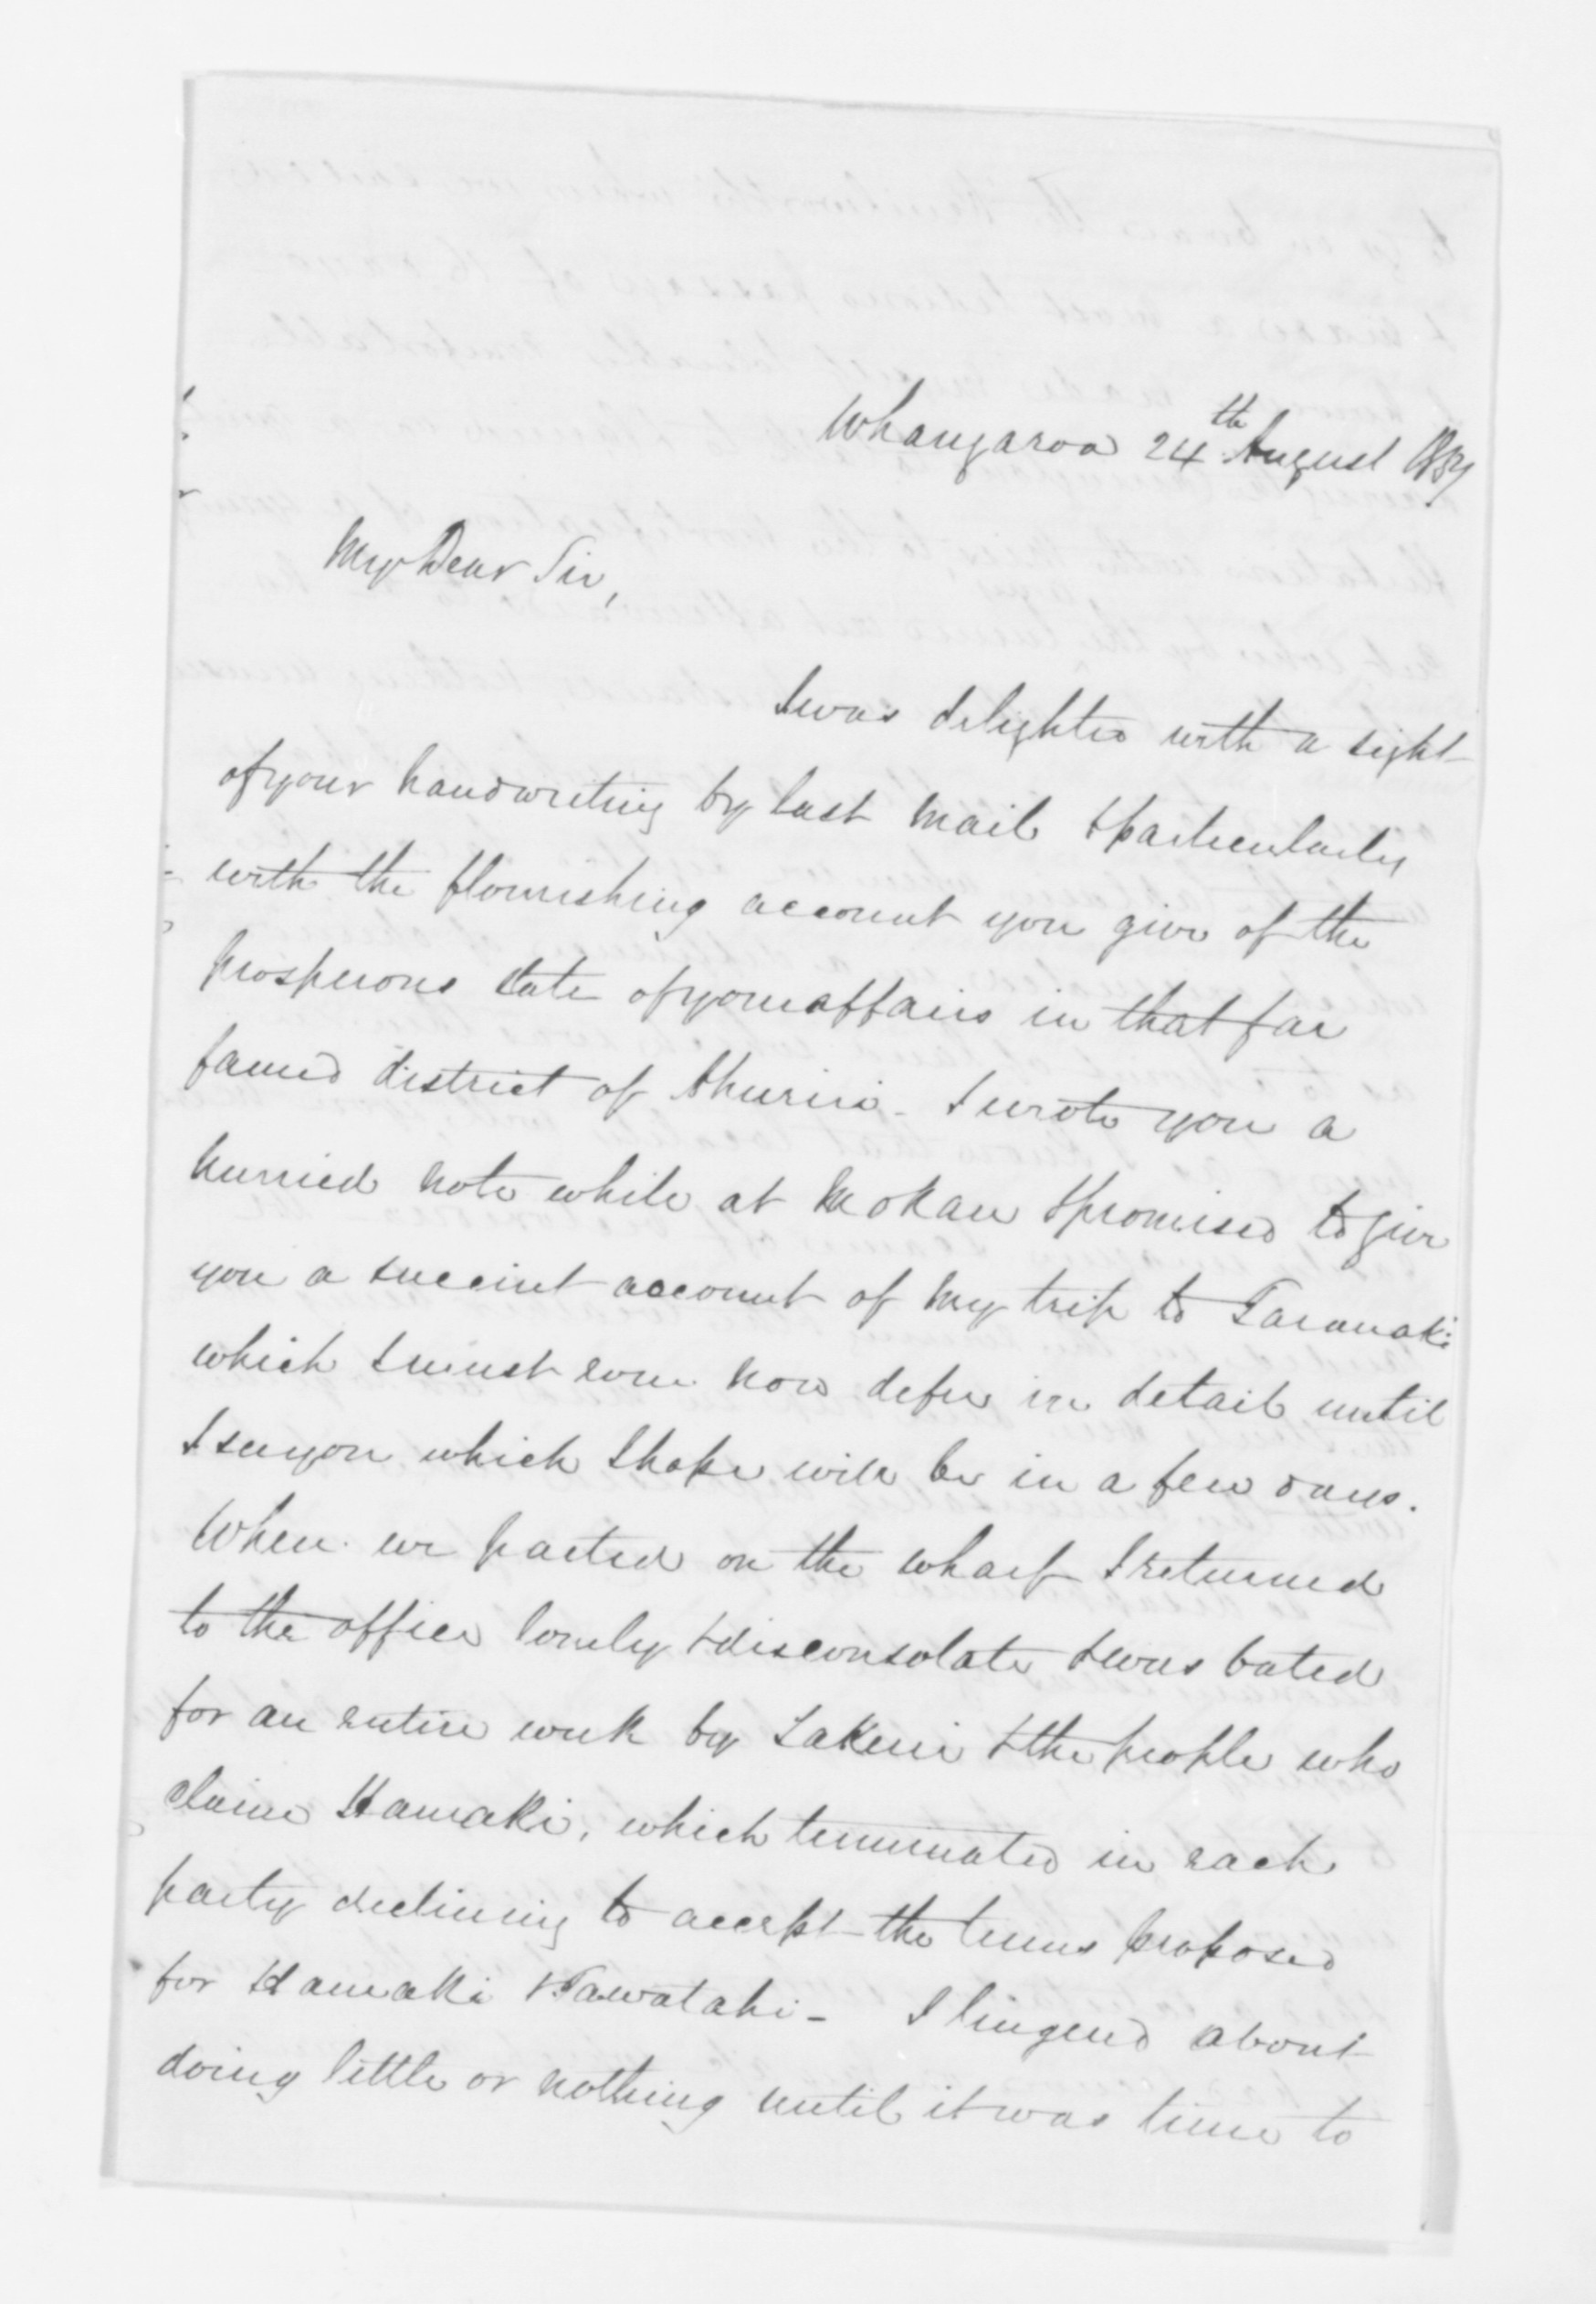 Whangaroa 24th August 1857
My Dear Sir,
I was delighted with a sight
of your handwriting by last mail & particularly
with the flourishing account you give of the
prosperous state of your affairs in that far
famed district of Ahuriri - I wrote you a
hurried note while at Mokau & promised to give
you a succint account of my trip to Taranaki
which I must even now defer in detail until
I see you which I hope will be in a few days.
When we parted on the wharf I returned
to the office lonely & disconsolate & was bated
for an entire week by Takerei & the people who
claim Hamaki, which terminated in each
party declining to accept the terms proposed
for Hamaki & Tawatahi - I lingered about
doing little or nothing until it was time to